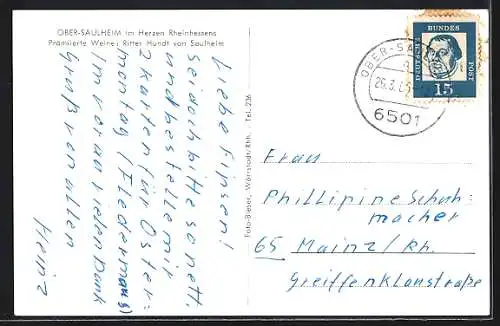 OBER-SAULHEIM im Herzen Rheinhessens
Prämiierte Weine: Ritter Hundt von Saulheim
Liebe Finsen!
Seid doch bitte so nett
und bestelle mir
2 Karten für Oster-
montag (Fledermaus)
Im voraus vielen Dank
Gruß von allen
Heinz
Foto-Bieser, Wörrstadt/Rhh. Tel. 236
DEUTSCHE BUNDESPOST
15
OBER-SA
26.3.
6501
Frau
Phillipine Schuh-
macher
65 Mainz/Rh.
Greiffenklaustraße